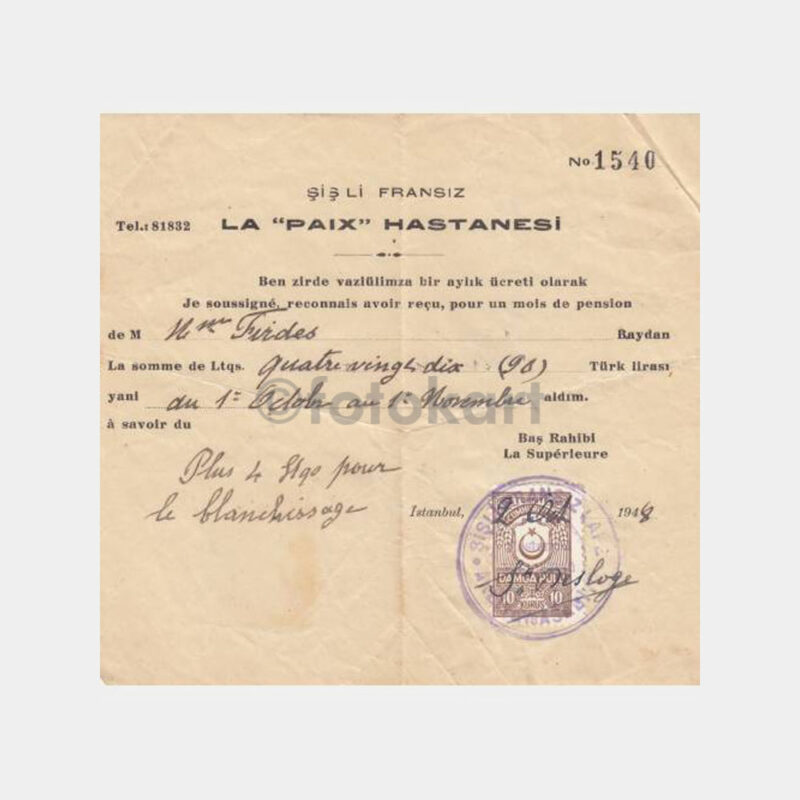 No 1540
ŞİŞLİ FRANSIZ
Tel.: 81832 LA "PAIX" HASTANESİ
Ben zirde vaziülimza bir aylık ücreti olarak
Je soussigné, reconnais avoir reçu, pour un mois de pension
de M Mme Firdes Raydan
La somme de Ltqs. quatre vingt dix (90) Türk lirası
yani du 1er Octobre au 1er Novembre aldım.
à savoir du
©fotokart
Baş Rahibi
La Supérieure
Plus 4 Ltqs pour
le blanchissage
İstanbul, 2 Oct 1948
DAMGA PULU
10 KURUŞ 10